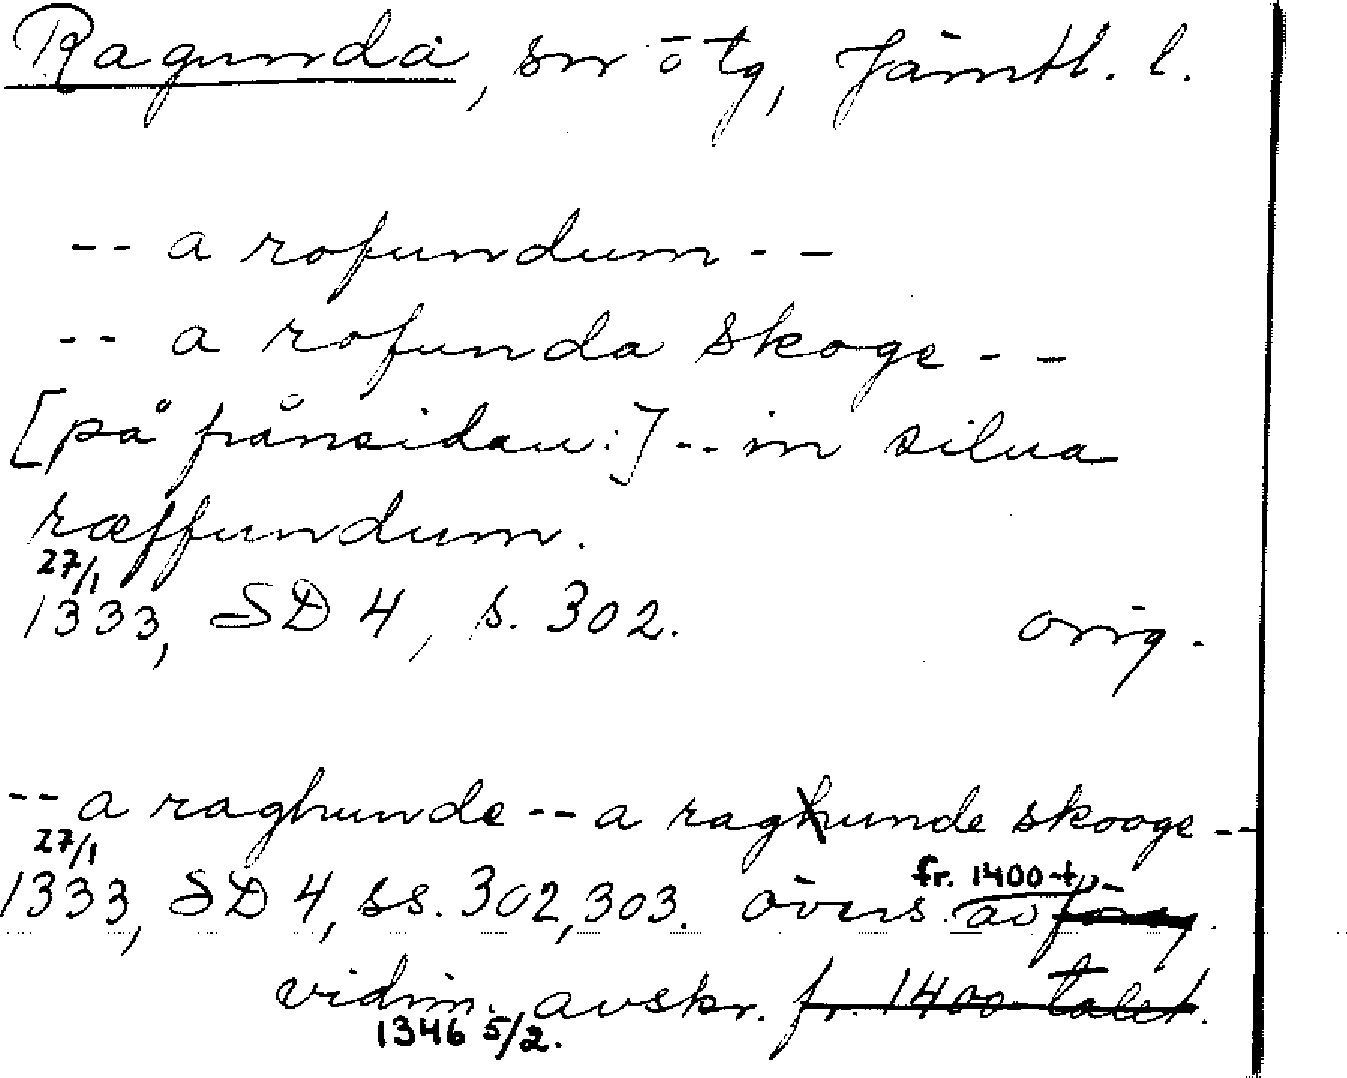 Ragunda, sn o tg, Jämtl. l.
-- a rofundum --
-- a rofunda skoge --
[på frånsidan:] -- in silua
ræffundum.
27/1
1333, SD 4, s. 302. orig.
-- a raghunde -- a raghunde skooge --
27/1 fr. 1400-t.
1333, SD 4, ss. 302, 303. övers. av
vidim. avskr. fr. 1400-talet.
1346 5/2.